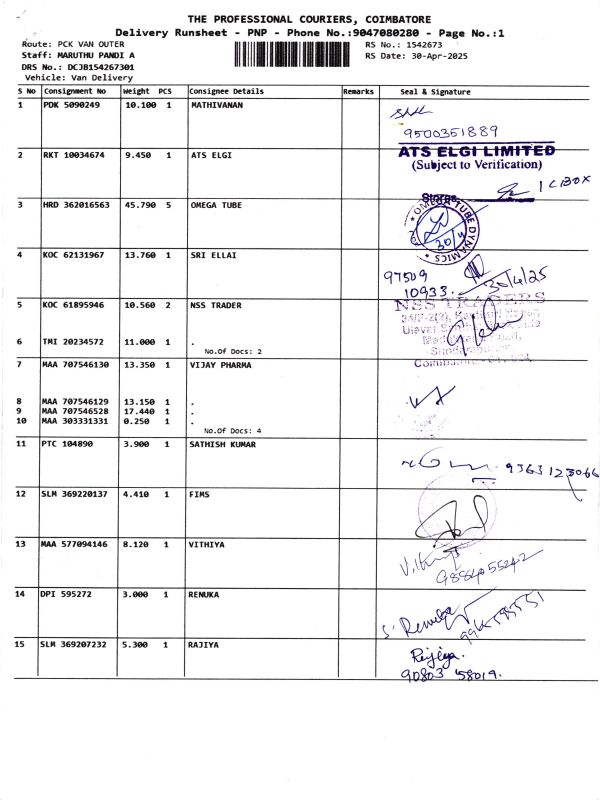 THE PROFESSIONAL COURIERS, COIMBATORE
Delivery Runsheet - PNP - Phone No.:9047080280 - Page No.:1
Route: PCK VAN OUTER
RS No.: 1542673
Staff: MARUTHU PANDI A
RS Date: 30-Apr-2025
DRS No.: DCJB154267301
Vehicle: Van Delivery
S No Consignment No Weight PCS Consignee Details Remarks Seal & Signature
1 PDK 5090249 10.100 1 MATHIVANAN
9500351889
2 RKT 10034674 9.450 1 ATS ELGI
ATS ELGI LIMITED
(Subject to Verification)
1 CBOX
Stores
3 HRD 362016563 45.790 5 OMEGA TUBE
OMEGA TUBE DYNAMICS
30/4
4 KOC 62131967 13.760 1 SRI ELLAI
97509
10933
30/4/25
5 KOC 61895946 10.560 2 NSS TRADER
NSS TRADERS
6 TMI 20234572 11.000 1 .
No.Of Docs: 2
7 MAA 707546130 13.350 1 VIJAY PHARMA
8 MAA 707546129 13.150 1 .
9 MAA 707546528 17.440 1 .
10 MAA 303331331 0.250 1 .
No.Of Docs: 4
11 PTC 104890 3.900 1 SATHISH KUMAR
12 SLM 369220137 4.410 1 FIMS
13 MAA 577094146 8.120 1 VITHIYA
14 DPI 595272 3.000 1 RENUKA
S. Renuka
15 SLM 369207232 5.300 1 RAJIYA
Rejiya.
90803 58019.